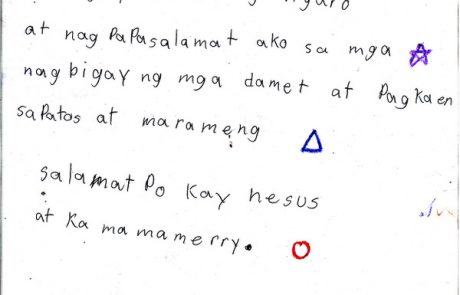 at nag PaPasalamat ako sa mga
nagbigay ng mga damet at Pagkaen
saPatos at marameng
salamat Po kay hesus
at ka ma mamerry.